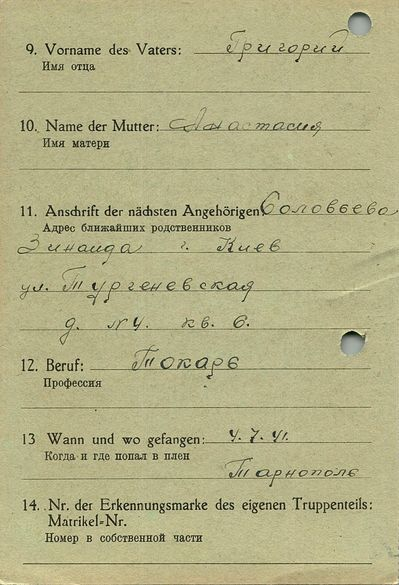 9. Vorname des Vaters: Григорий
Имя отца
10. Name der Mutter: Анастасия
Имя матери
11. Anschrift der nächsten Angehörigen: Соловьева
Адрес ближайших родственников
Зинаида г. Киев
ул. Тургеневская
д. № 4. кв. 6.
12. Beruf: Токарь
Профессия
13 Wann und wo gefangen: 4.7.41.
Когда и где попал в плен
Тарнополь
14. Nr. der Erkennungsmarke des eigenen Truppenteils:
Matrikel-Nr.
Номер в собственной части